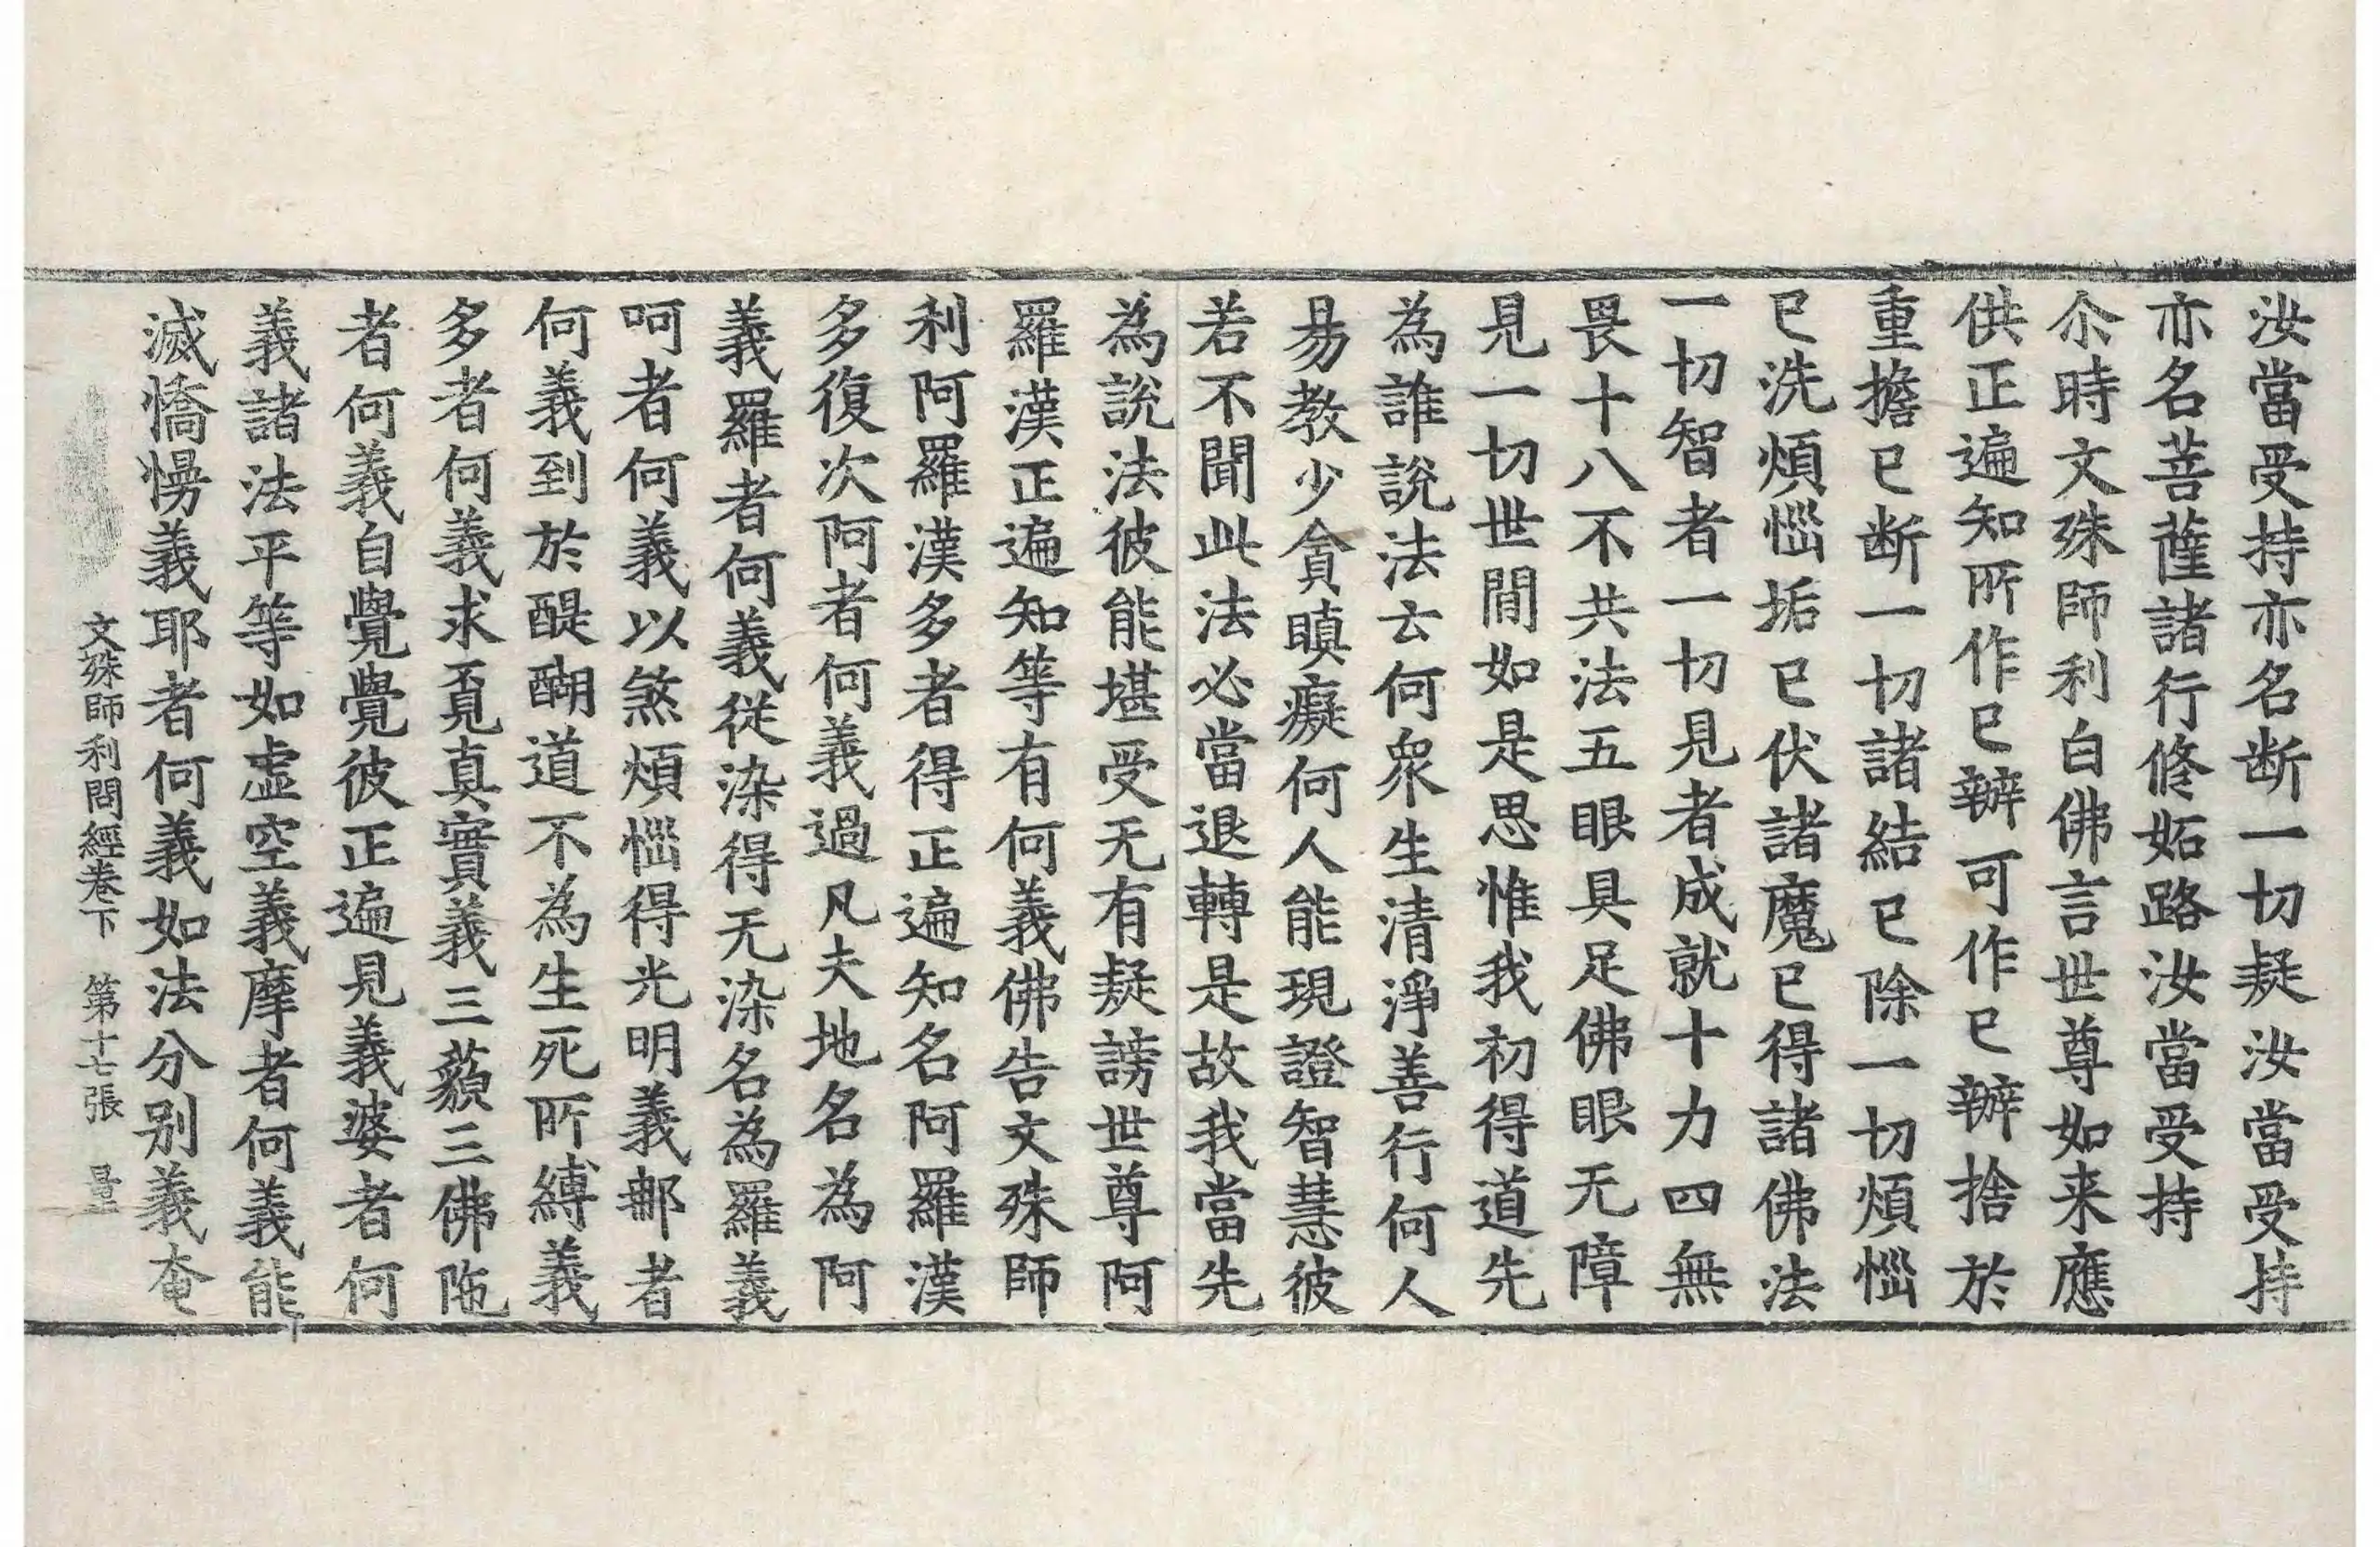 汝當受持亦名断一切疑汝當受持
亦名菩薩諸行修妬路汝當受持
尒時文殊師利白佛言世尊如来應
供正遍知所作已辦可作已辦捨於
重擔已断一切諸結已除一切煩惱
已洗煩惱垢已伏諸魔已得諸佛法
一切智者一切見者成就十力四無
畏十八不共法五眼具足佛眼无障
見一切世間如是思惟我初得道先
為誰說法云何衆生清淨善行何人
易教少貪瞋癡何人能現證智慧彼
若不聞此法必當退轉是故我當先
為說法彼能堪受无有疑謗世尊阿
羅漢正遍知等有何義佛告文殊師
利阿羅漢多者得正遍知名阿羅漢
多復次阿者何義過凡夫地名為阿
義羅者何義從染得无染名為羅義
呵者何義以煞煩惱得光明義郍者
何義到於醍醐道不為生死所縛義
多者何義求覔真實義三藐三佛陁
者何義自覺覺彼正遍見義婆者何
義諸法平等如虛空義摩者何義能
滅憍慢義耶者何義如法分別義奄
文殊師利問經卷下　第十七張　量